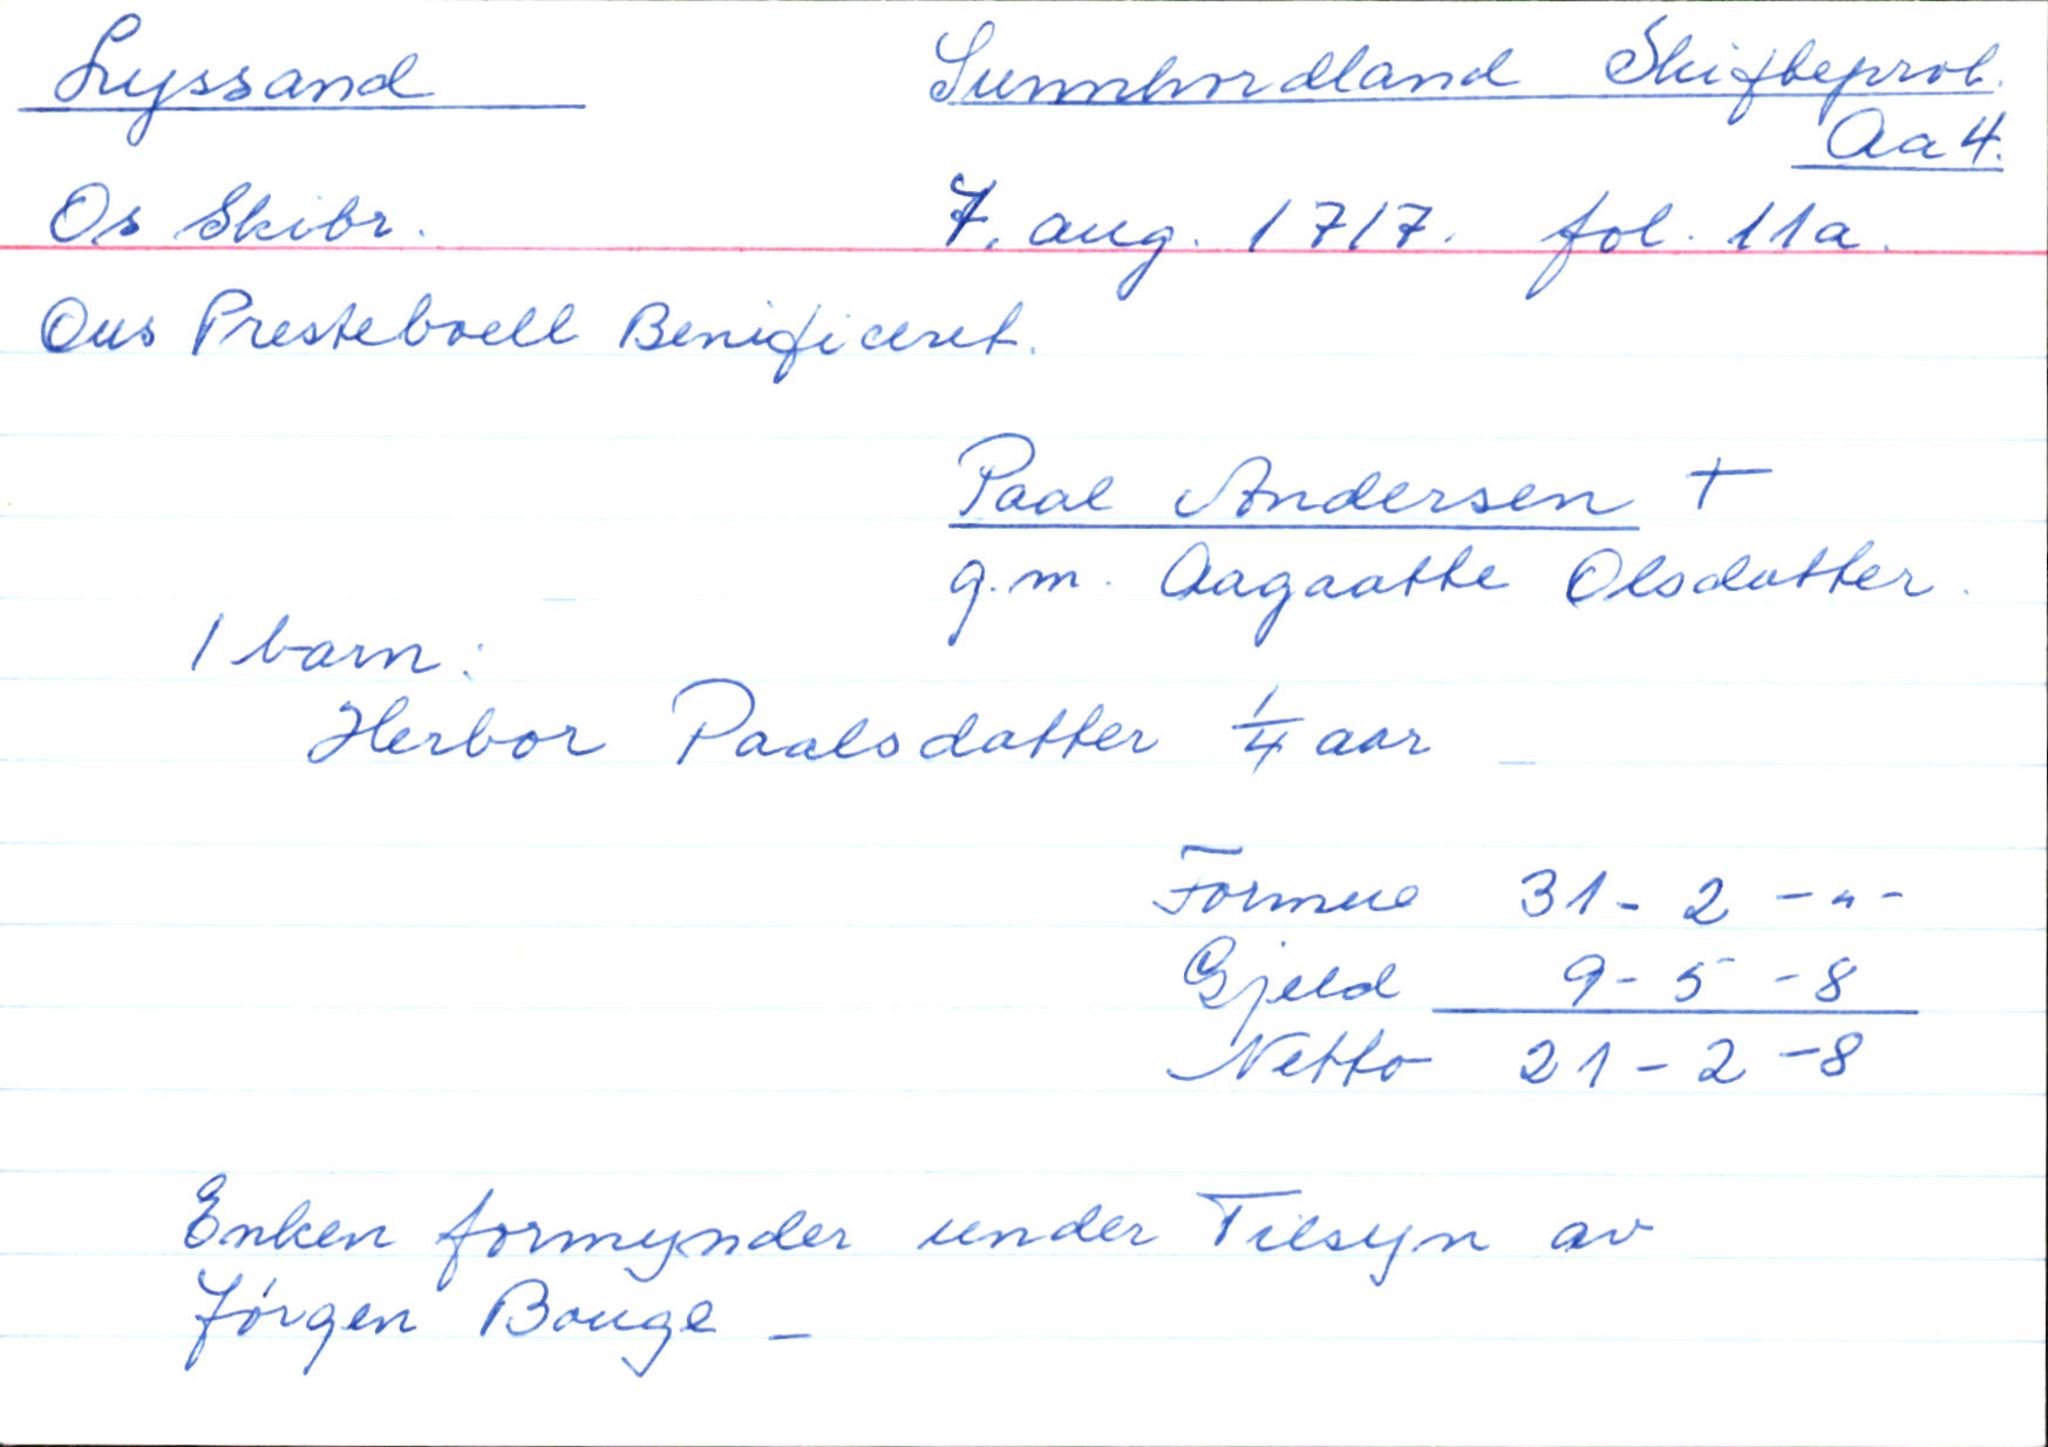 Lyssand Sunnhordland Skifteprot.
Aa 4.
Os Skibr. 7. aug. 1717. fol. 11a.
Ous Presteboell Benificeret.
Paal Andersen †
g.m. Aagaatte Olsdatter.
1 barn:
Herbor Paalsdatter 1/4 aar _
Formue 31 - 2 - " -
Gjeld 9 - 5 - 8
Netto 21 - 2 - 8
Enken formynder under Tilsyn av
Jørgen Bouge _